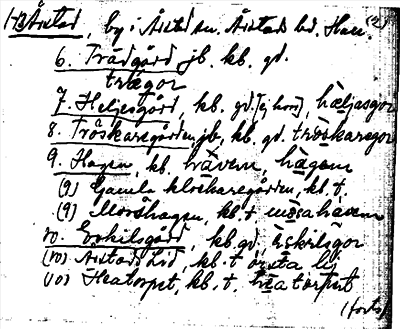 1-13 Årstad, by i Årstad sn. Årstads hd. Hall. (2)
6. Trädgård jb. kb. gd.
trægor
7. Heljesgård, kb. gd. [ej hörn], hæljasgor
8. Tröskaregården jb, kb. gd. tröskaregor
9. Hagen, kb. hàven, hàgen
(9) Gamla klockaregården, kb. †,
(9) Morshagen, kb. †
10. Eskilsgård, kb. gd. èskilsgor
(10) Årstads Lid, kb. †
(10) Heatorpet, kb. †, heatorpet
(forts)